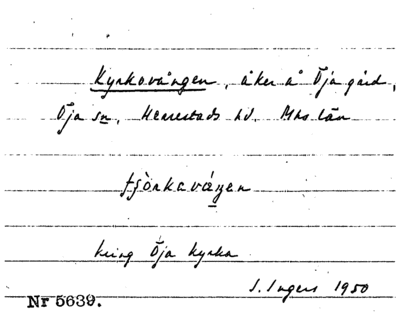 Kyrkovången, åker å Öja gård,
Öja sn, Herrestads hd. Mhs län
tjörkavángen
kring Öja kyrka
I. Ingers 1950
Nr 5639.